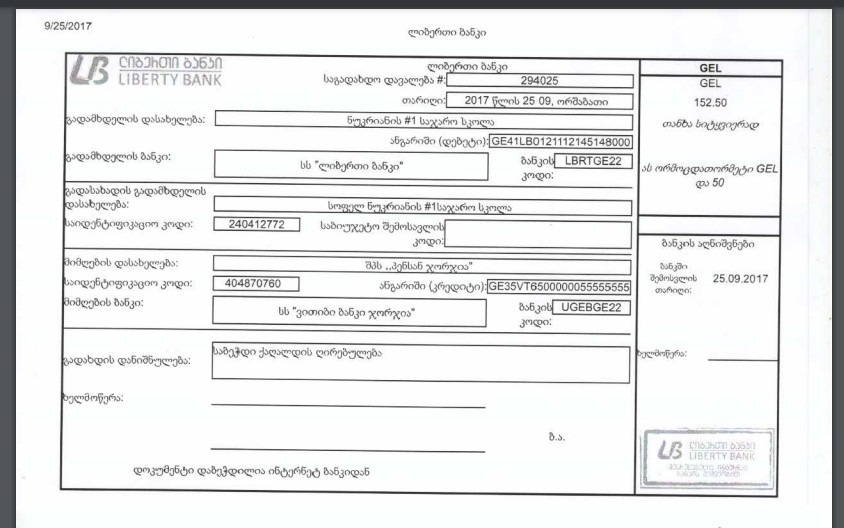 9/25/2017
ლიბერთი ბანკი
ლიბერთი ბანკი
LIBERTY BANK
ლიბერთი ბანკი
საგადახდო დავალება #: 294025
თარიღი: 2017 წლის 25 09, ორშაბათი
გადამხდელის დასახელება: ნუკრიანის #1 საჯარო სკოლა
ანგარიში (დებეტი): GE41LB0121112145148000
გადამხდელის ბანკი: სს "ლიბერთი ბანკი" ბანკის კოდი: LBRTGE22
გადასახადის გადამხდელის
დასახელება: სოფელ ნუკრიანის #1საჯარო სკოლა
საიდენტიფიკაციო კოდი: 240412772 საბიუჯეტო შემოსავლის
კოდი:
მიმღების დასახელება: შპს ,,პენსან ჯორჯია"
საიდენტიფიკაციო კოდი: 404870760 ანგარიში (კრედიტი): GE35VT6500000055555555
მიმღების ბანკი: სს "ვითიბი ბანკი ჯორჯია" ბანკის კოდი: UGEBGE22
გადახდის დანიშნულება: საბეჭდი ქაღალდის ღირებულება
ხელმოწერა:
ბ.ა.
დოკუმენტი დაბეჭდილია ინტერნეტ ბანკიდან
GEL
GEL
152.50
თანხა სიტყვიერად
ას ორმოცდათორმეტი GEL
და 50
ბანკის აღნიშვნები
ბანკში
შემოსვლის
თარიღი: 25.09.2017
ხელმოწერა:
ლიბერთი ბანკი
LIBERTY BANK